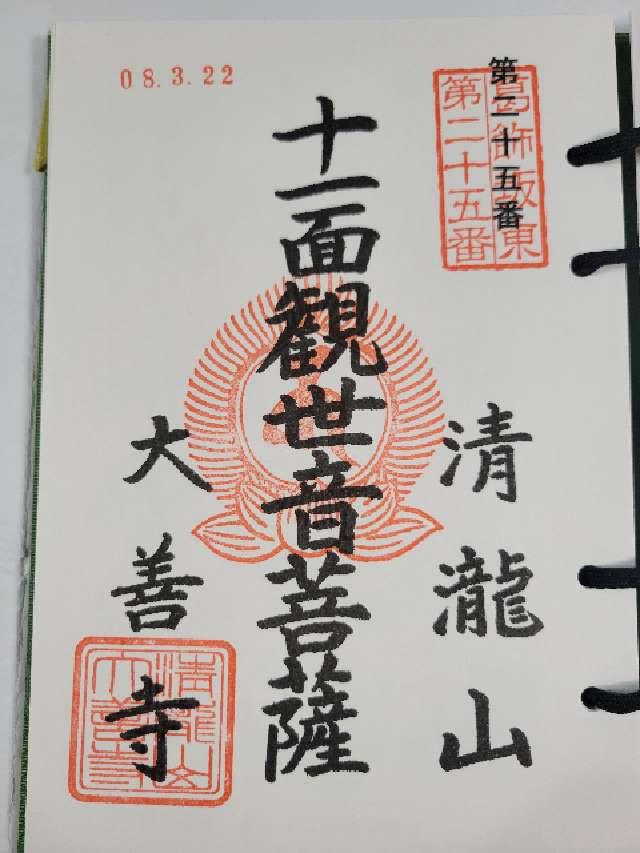 08.3.22
第二十五番
葛飾坂東
第二十五番
十一面観世音菩薩
清瀧山
大善寺